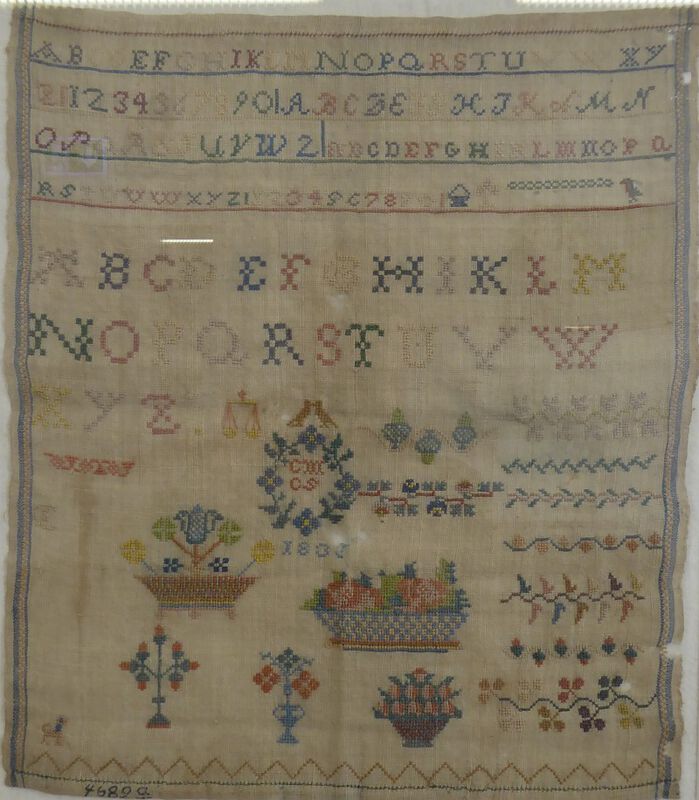 AB EFGHIKLMNOPQRSTU XY
1234 678901ABCDE HIKLMN
OP UVWZ ABCDEFGH LMNOPQ
RS UVWXYZ1 34 678
ABCDEFGHIKLM
NOPQRSTUVW
XYZ
CM
CS
180
4689a